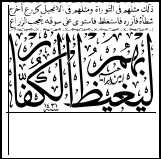 ذلك مثلهم في التوراة ومثلهم في الانجيل كزرع أخرج
شطأه فآزره فاستغلظ فاستوى على سوقه يعجب الزراع
ليغيظ بهم الكفار
١٤٣١